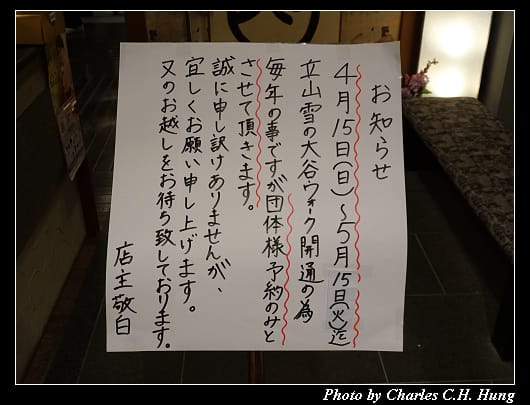 お知らせ
4月15日(日)〜5月15日(火)迄
立山雪の大谷ウォーク開通の為
毎年の事ですが団体様予約のみと
させて頂きます。
誠に申し訳けありませんが、
宜しくお願い申し上げます。
又のお越しをお待ち致しております。
店主敬白
Photo by Charles C.H. Hung